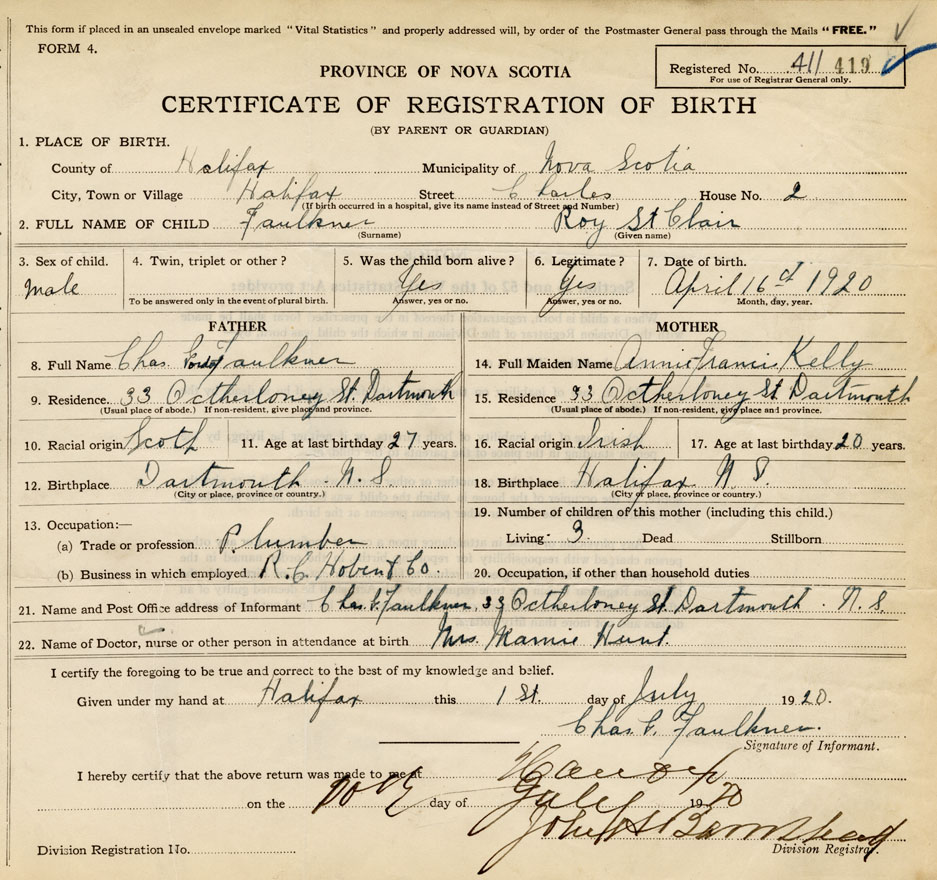 This form if placed in an unsealed envelope marked "Vital Statistics" and properly addressed will, by order of the Postmaster General pass through the Mails "FREE."
FORM 4.
Registered No. 411 419
For use of Registrar General only.
PROVINCE OF NOVA SCOTIA
CERTIFICATE OF REGISTRATION OF BIRTH
(BY PARENT OR GUARDIAN)
1. PLACE OF BIRTH.
County of Halifax Municipality of Nova Scotia
City, Town or Village Halifax Street Charles House No. 2
(If birth occurred in a hospital, give its name instead of Street and Number)
2. FULL NAME OF CHILD Faulkner Roy St Clair
(Surname) (Given name)
3. Sex of child. 4. Twin, triplet or other? 5. Was the child born alive? 6. Legitimate? 7. Date of birth.
Male Yes Yes April 16 1920
To be answered only in the event of plural birth. Answer, yes or no. Answer, yes or no. Month, day, year.
FATHER MOTHER
8. Full Name Chas. Faulkner 14. Full Maiden Name Annie Francis Kelly
9. Residence 33 Octherloney St. Dartmouth 15. Residence 33 Octherloney St Dartmouth
(Usual place of abode.) If non-resident, give place and province. (Usual place of abode.) If non-resident, give place and province.
10. Racial origin Scoth 11. Age at last birthday 27 years. 16. Racial origin Irish 17. Age at last birthday 20 years.
12. Birthplace Dartmouth N.S. 18. Birthplace Halifax N.S.
(City or place, province or country.) (City or place, province or country.)
13. Occupation:— 19. Number of children of this mother (including this child.)
(a) Trade or profession Plumber Living 3 Dead Stillborn
(b) Business in which employed R.C. Co. 20. Occupation, if other than household duties
21. Name and Post Office address of Informant Chas. F. Faulkner, 33 Octherloney St. Dartmouth. N.S.
22. Name of Doctor, nurse or other person in attendance at birth Mrs. Mamie Hunt.
I certify the foregoing to be true and correct to the best of my knowledge and belief.
Given under my hand at Halifax this 1 St. day of July 1920.
Chas. F. Faulkner.
Signature of Informant.
I hereby certify that the above return was made to me at
on the day of July 1920
John
Division Registration No. Division Registrar.